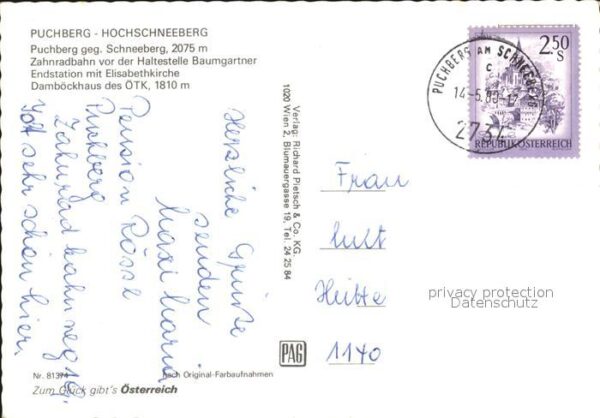 PUCHBERG - HOCHSCHNEEBERG
Puchberg geg. Schneeberg, 2075 m
Zahnradbahn vor der Haltestelle Baumgartner
Endstation mit Elisabethkirche
Damböckhaus des ÖTK, 1810 m
Herzliche Grüße
senden
Maxi
Pension Rössl
Puchberg
Zahnradbahn
Ist sehr schön hier.
Verlag: Richard Pietsch & Co. KG.
1020 Wien 2, Blumauergasse 19, Tel. 24 25 84
2.50
S
REPUBLIK ÖSTERREICH
PUCHBERG AM SCHNEEBERG
c
14.-5.80-17
2734
Frau
1140
privacy protection
Datenschutz
PAG
Nr. 81374
nach Original-Farbaufnahmen
Zum Glück gibt's Österreich